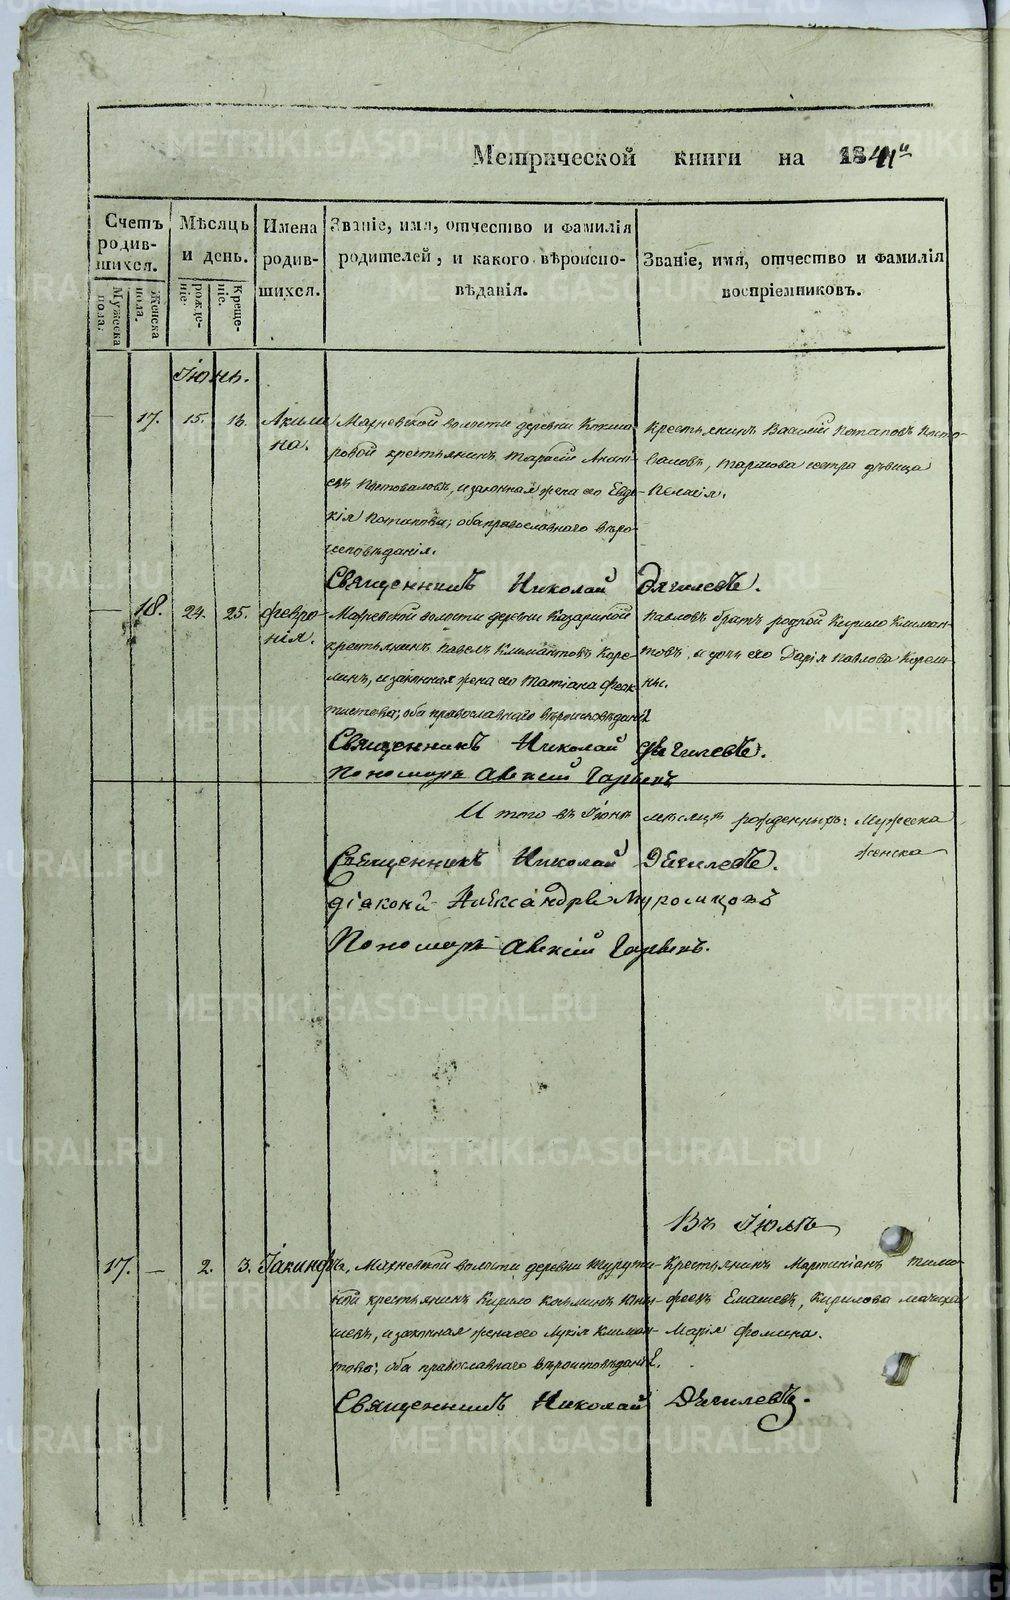 Метрической книги на 1841й
Счетъ родив-шихся.
Мужеска пола.
Женска пола.
Мѣсяцъ и день.
рожде-нiе.
Креще-нiе.
Имена родив-шихся.
Званiе, имя, отчество и фамилiя
родителей, и какого вѣроиспо-
вѣданiя.
Званiе, имя, отчество и фамилiя
воспрiемниковъ.
Iюнь.
— 17. 15. 16. Акили-
на.
Махневской волости деревни
ровой крестьянинъ Тарасiй Ананi-
евъ Постоваловъ, и законная жена его Евдо-
кiя Потапова; оба православнаго вѣро-
исповѣданiя.
Крестьянинъ Василiй Потаповъ Посто-
валовъ, Тарасова сестра дѣвица
Пелагiя.
Священникъ Николай Дягилевъ.
— 18. 24. 25. Февро-
нiя.
Махневской волости деревни Казариной
крестьянинъ Павелъ Климантовъ Коре-
линъ, и законная жена его Татiана Феок-
тистова; оба православнаго вѣроисповѣданiя
Павловъ братъ родной Кирило Климан-
товъ, и дочь его Дарiя Павлова Корели-
ны.
Священникъ Николай Дягилевъ.
Пономарь Алексiй
Итого въ Iюнѣ мѣсяцѣ рожденныхъ: Мужеска
женска
Священникъ Николай Дягилевъ.
Дiаконъ Александръ Муромцовъ
Пономарь Алексiй
Въ Iюлѣ
17. — 2. 3. Iакинфъ,
Махневской волости, деревни
крестьянинъ Кирило Козьминъ
шевъ, и законная жена его Лукiя Климан-
това; оба православнаго вѣроисповѣданiя.
Крестьянинъ Мартинiанъ Тимо-
феевъ Емашевъ, Кирилова мачиха
Марiя Фомина.
Священникъ Николай Дягилевъ.
METRIKI.GASO-URAL.RU